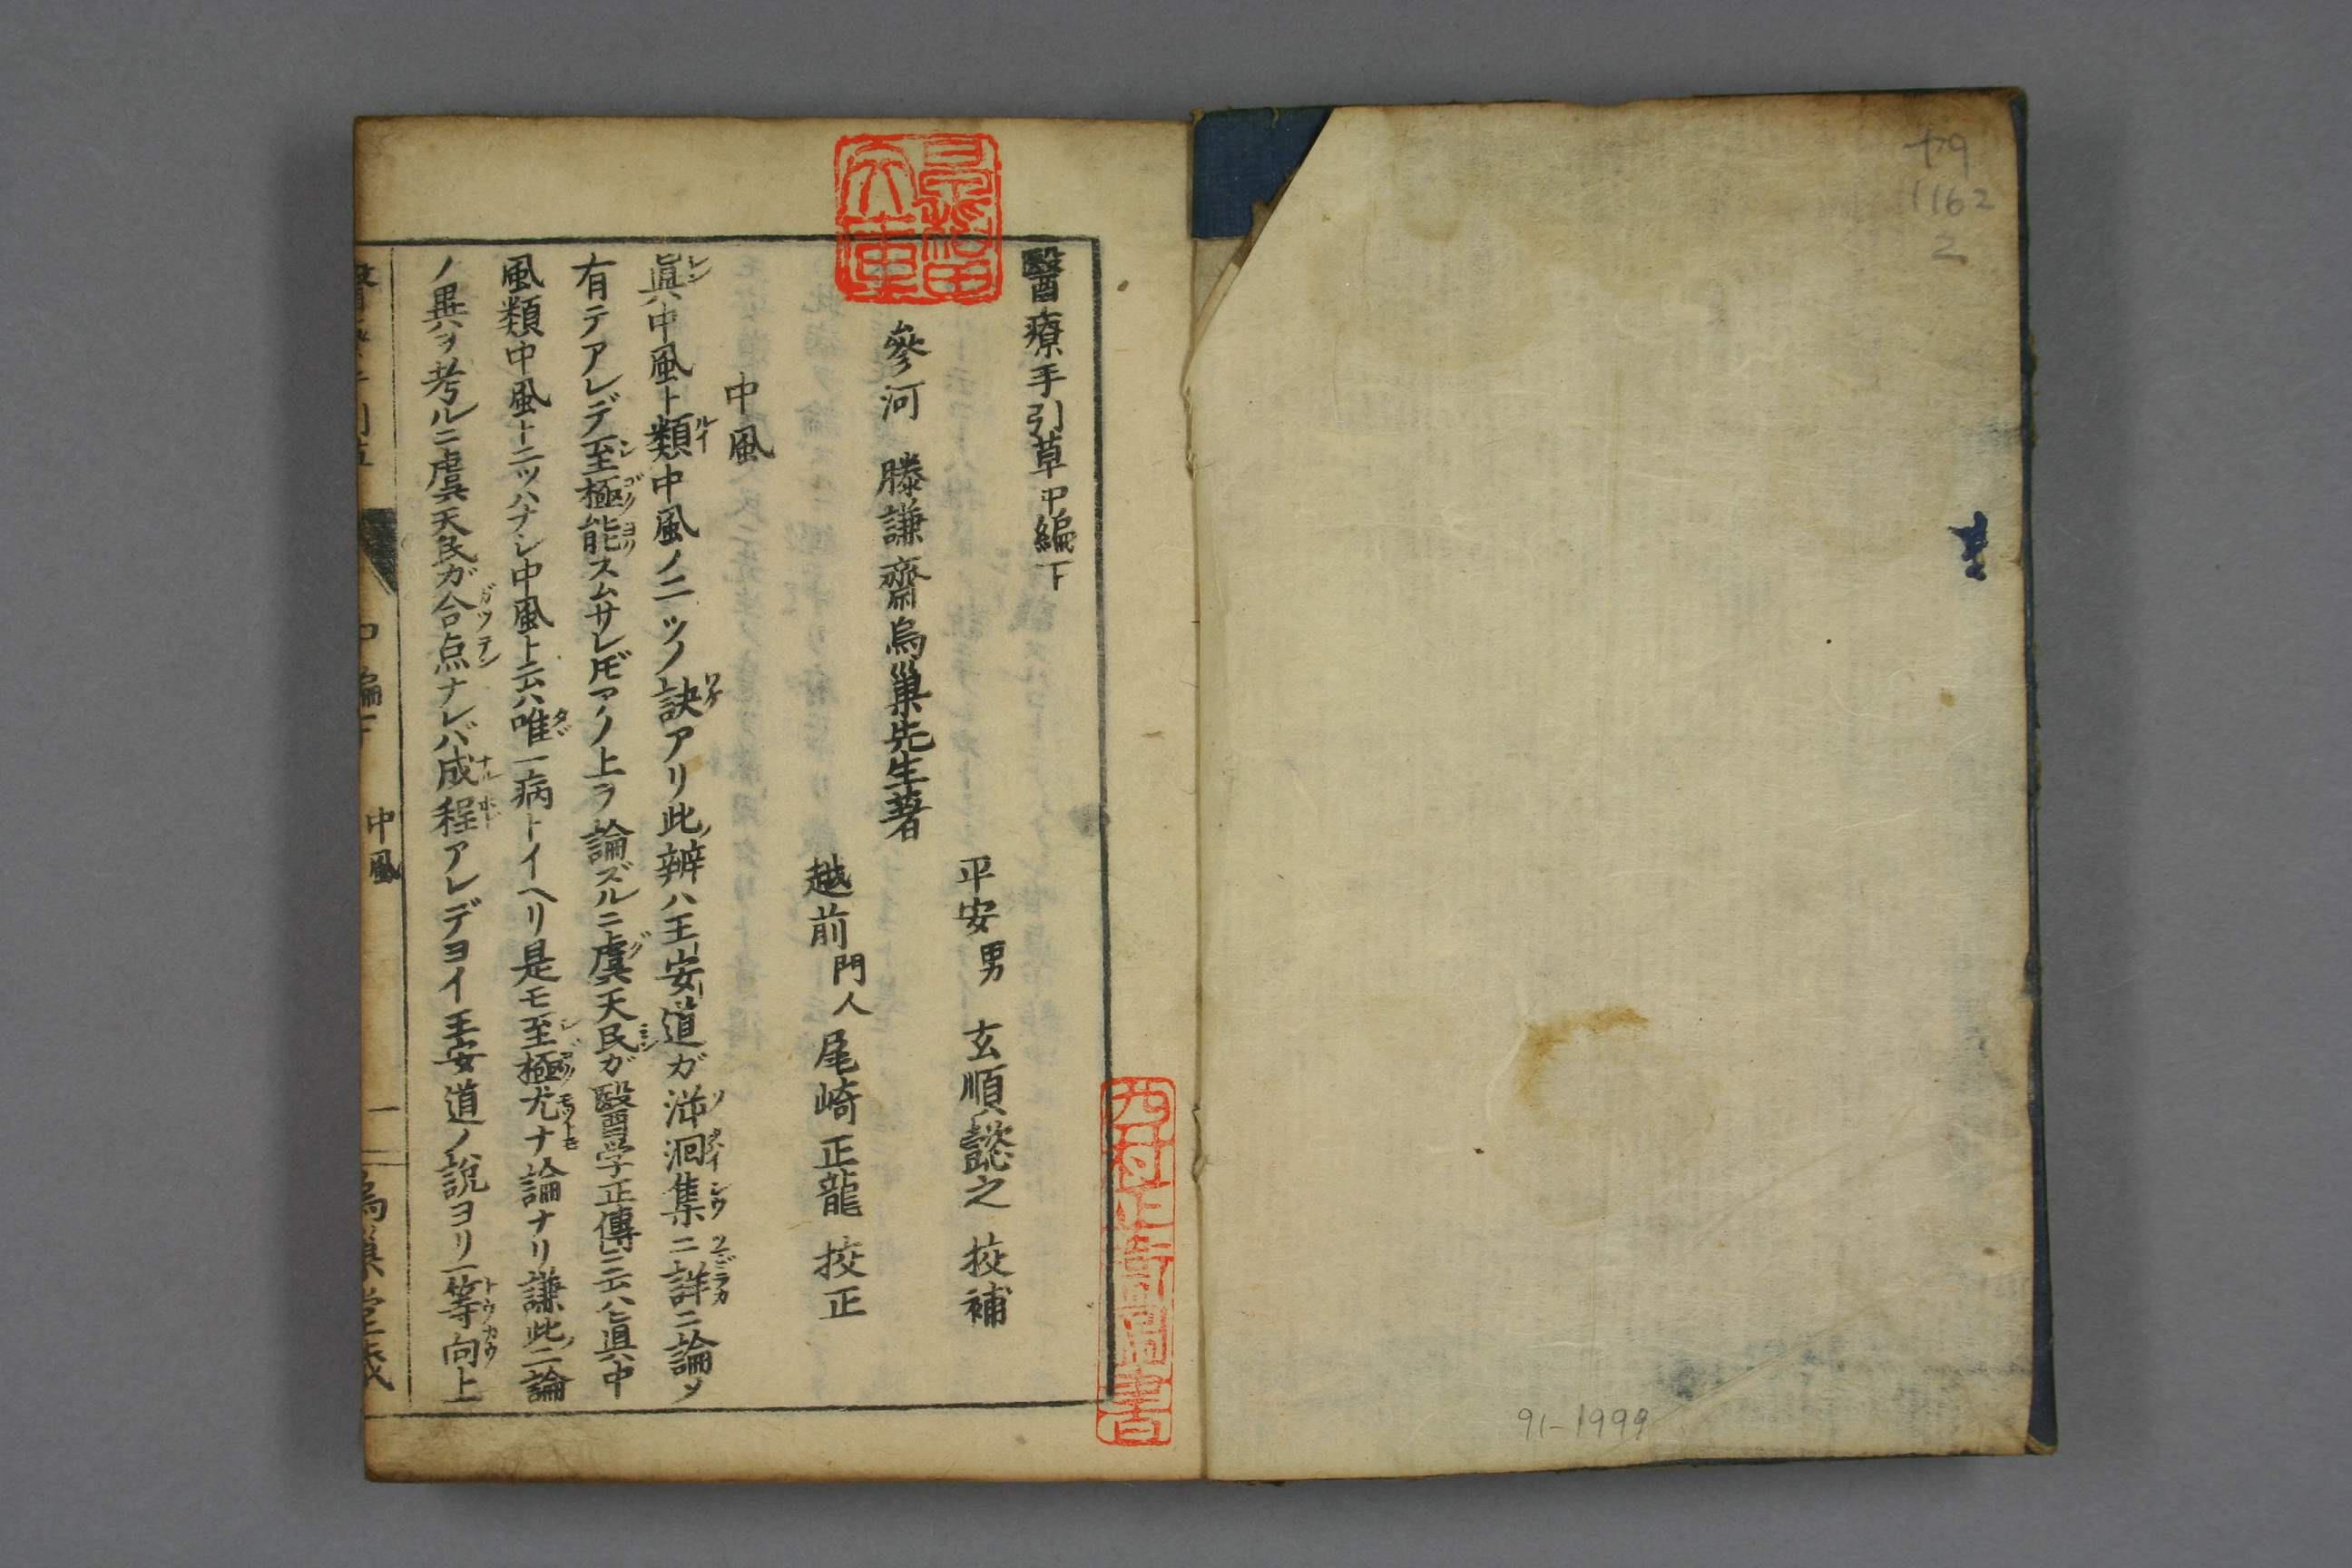 醫療手引草中編下
平安男 玄順懿之 挍補
參河 滕謙齋烏巢先生著
越前門人尾崎正龍 挍正
中風
眞中風ト類中風ノ二ツノ訣アリ此辨ハ王安道ガ泝洄集ニ詳ニ論〆
有テアレデ至極能スムサレ𪜈アノ上ヲ論ズルニ虞天民ガ醫学正傳ニ云ハ眞中
風類中風ト二ツハナシ中風ト云ハ唯一病トイヘリ是モ至極尤ナ論ナリ謙此二論
ノ異ヲ考ルニ虞天民ガ合点ナレバ成程アレデヨイ王安道ノ說ヨリ一等向上
中編下
中風
一
烏巢堂藏
1162
2
91-1999